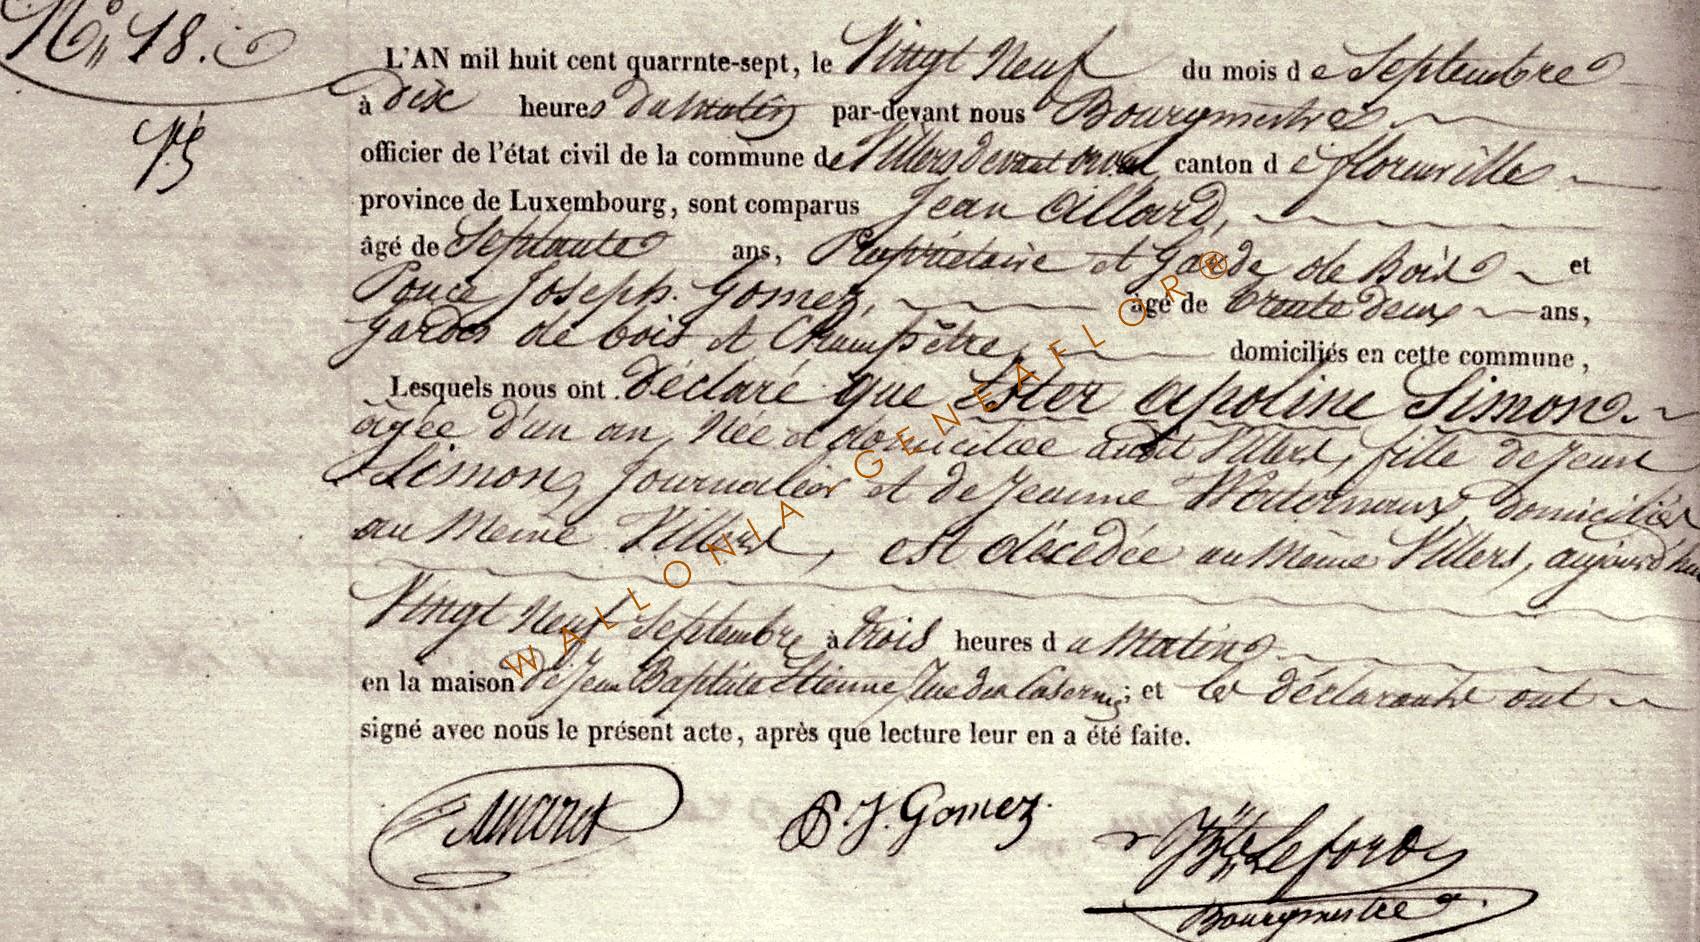 N° 18.
L'AN mil huit cent quarrnte-sept, le Vingt Neuf du mois de Septembre
à dix heures du Matin par-devant nous Bourgmestre
officier de l'état civil de la commune de Villers devant orval, canton de florenville
province de Luxembourg, sont comparus Jean Allard,
âgé de Septante ans, Propriétaire et Garde de Bois et
Ponce Joseph Gomez, âgé de trente deux ans,
Garde de bois et Champêtre, domiciliés en cette commune,
Lesquels nous ont déclaré que Ester apoline Simon
âgée d'un an, Née et domiciliée audit Villers, fille de Jean
Simon, Journalier et de Jeanne domiciliés
au Même Villers, est décédée au Même Villers, aujourd'hui
Vingt Neuf Septembre à trois heures du Matin
en la maison de Jean Baptiste Etienne, Rue des Casernes; et les déclarants ont
signé avec nous le présent acte, après que lecture leur en a été faite.
P J. Gomez
Bourgmestre
WALLONIA GENEAFLOR®